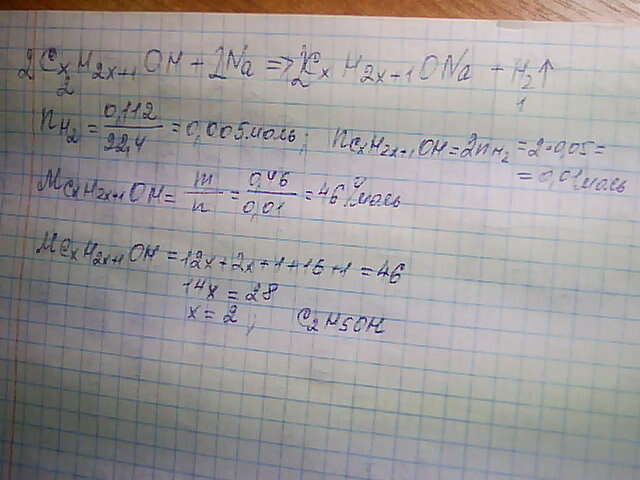 2CxH2x+1OH + 2Na => 2CxH2x+1ONa + H2↑
2 2 2 1
nH2 = 0,112/22,4 = 0,005моль; nCxH2x+1OH = 2nH2 = 2·0,05=
= 0,01моль
MCxH2x+1OH = m/n = 0,46/0,01 = 46 г/моль
MCxH2x+1OH = 12x+2x+1+16+1 = 46
14x = 28
x = 2; C2H5OH